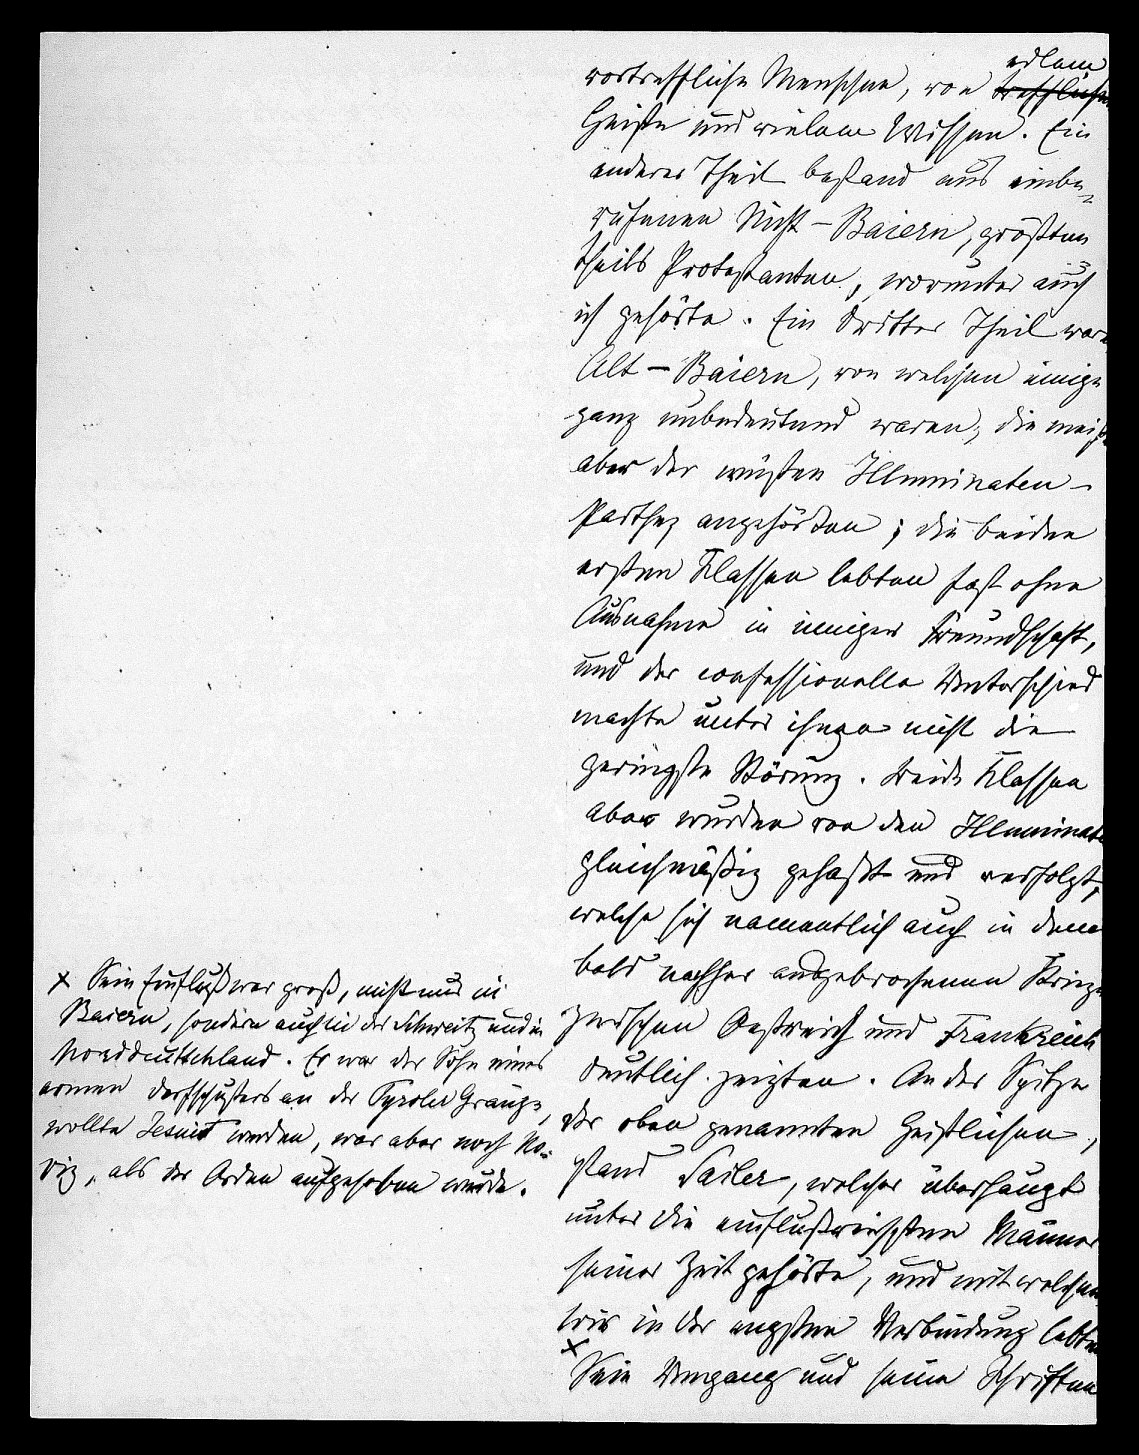 edlem
vortreffliche Menschen, von trefflichem
Geiste und vielem Wissen. Ein
anderer Theil bestand aus einbe-
rufenen Nicht-Baiern, größten
theils Protestanten, worunter auch
ich gehörte. Ein dritter Theil waren
Alt-Baiern, von welchen einige
ganz unbedeutend waren, die meisten
aber der wüsten Illuminaten-
Parthey angehörten; die beiden
ersten Klassen lebten fast ohne
Ausnahme in inniger Freundschaft,
und der confessionelle Unterschied
machte unter ihnen nicht die
geringste Störung. Beide Klassen
aber wurden von den Illuminaten
gleichmäßig gehaßt und verfolgt,
welche sich namentlich auch in dem
bald nachher ausgebrochenen Kriege
zwischen Oestreich und Frankreich
deutlich zeigten. An der Spitze
der oben genannten Geistlichen,
stand Sailer, welcher überhaupt
unter die einflußreichsten Männer
seiner Zeit gehörte, und mit welchem
wir in der engsten Verbindung lebten
x
Sein Umgang und seine Schriften
x Sein Einfluß war groß, nicht nur in
Baiern, sondern auch in der Schweitz und in
Norddeutschland. Er war der Sohn eines
armen Dorfschusters an der Tyroler Gränze,
wollte Jesuit werden, war aber noch No-
viz, als der Orden aufgehoben wurde.